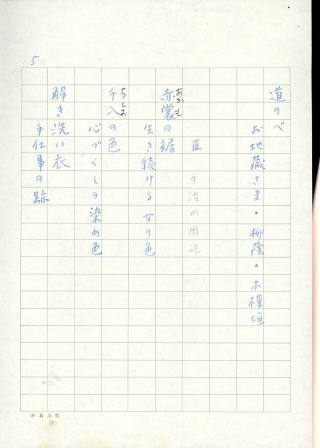 5
道のべ
お地蔵さま・柳蔭・木槿垣
Ⅲ 生活の周辺
赤裳の裾
あかも
生き続ける女の色
千入の色
ちしお
心づくしの染め色
解き洗い衣
手仕事の跡